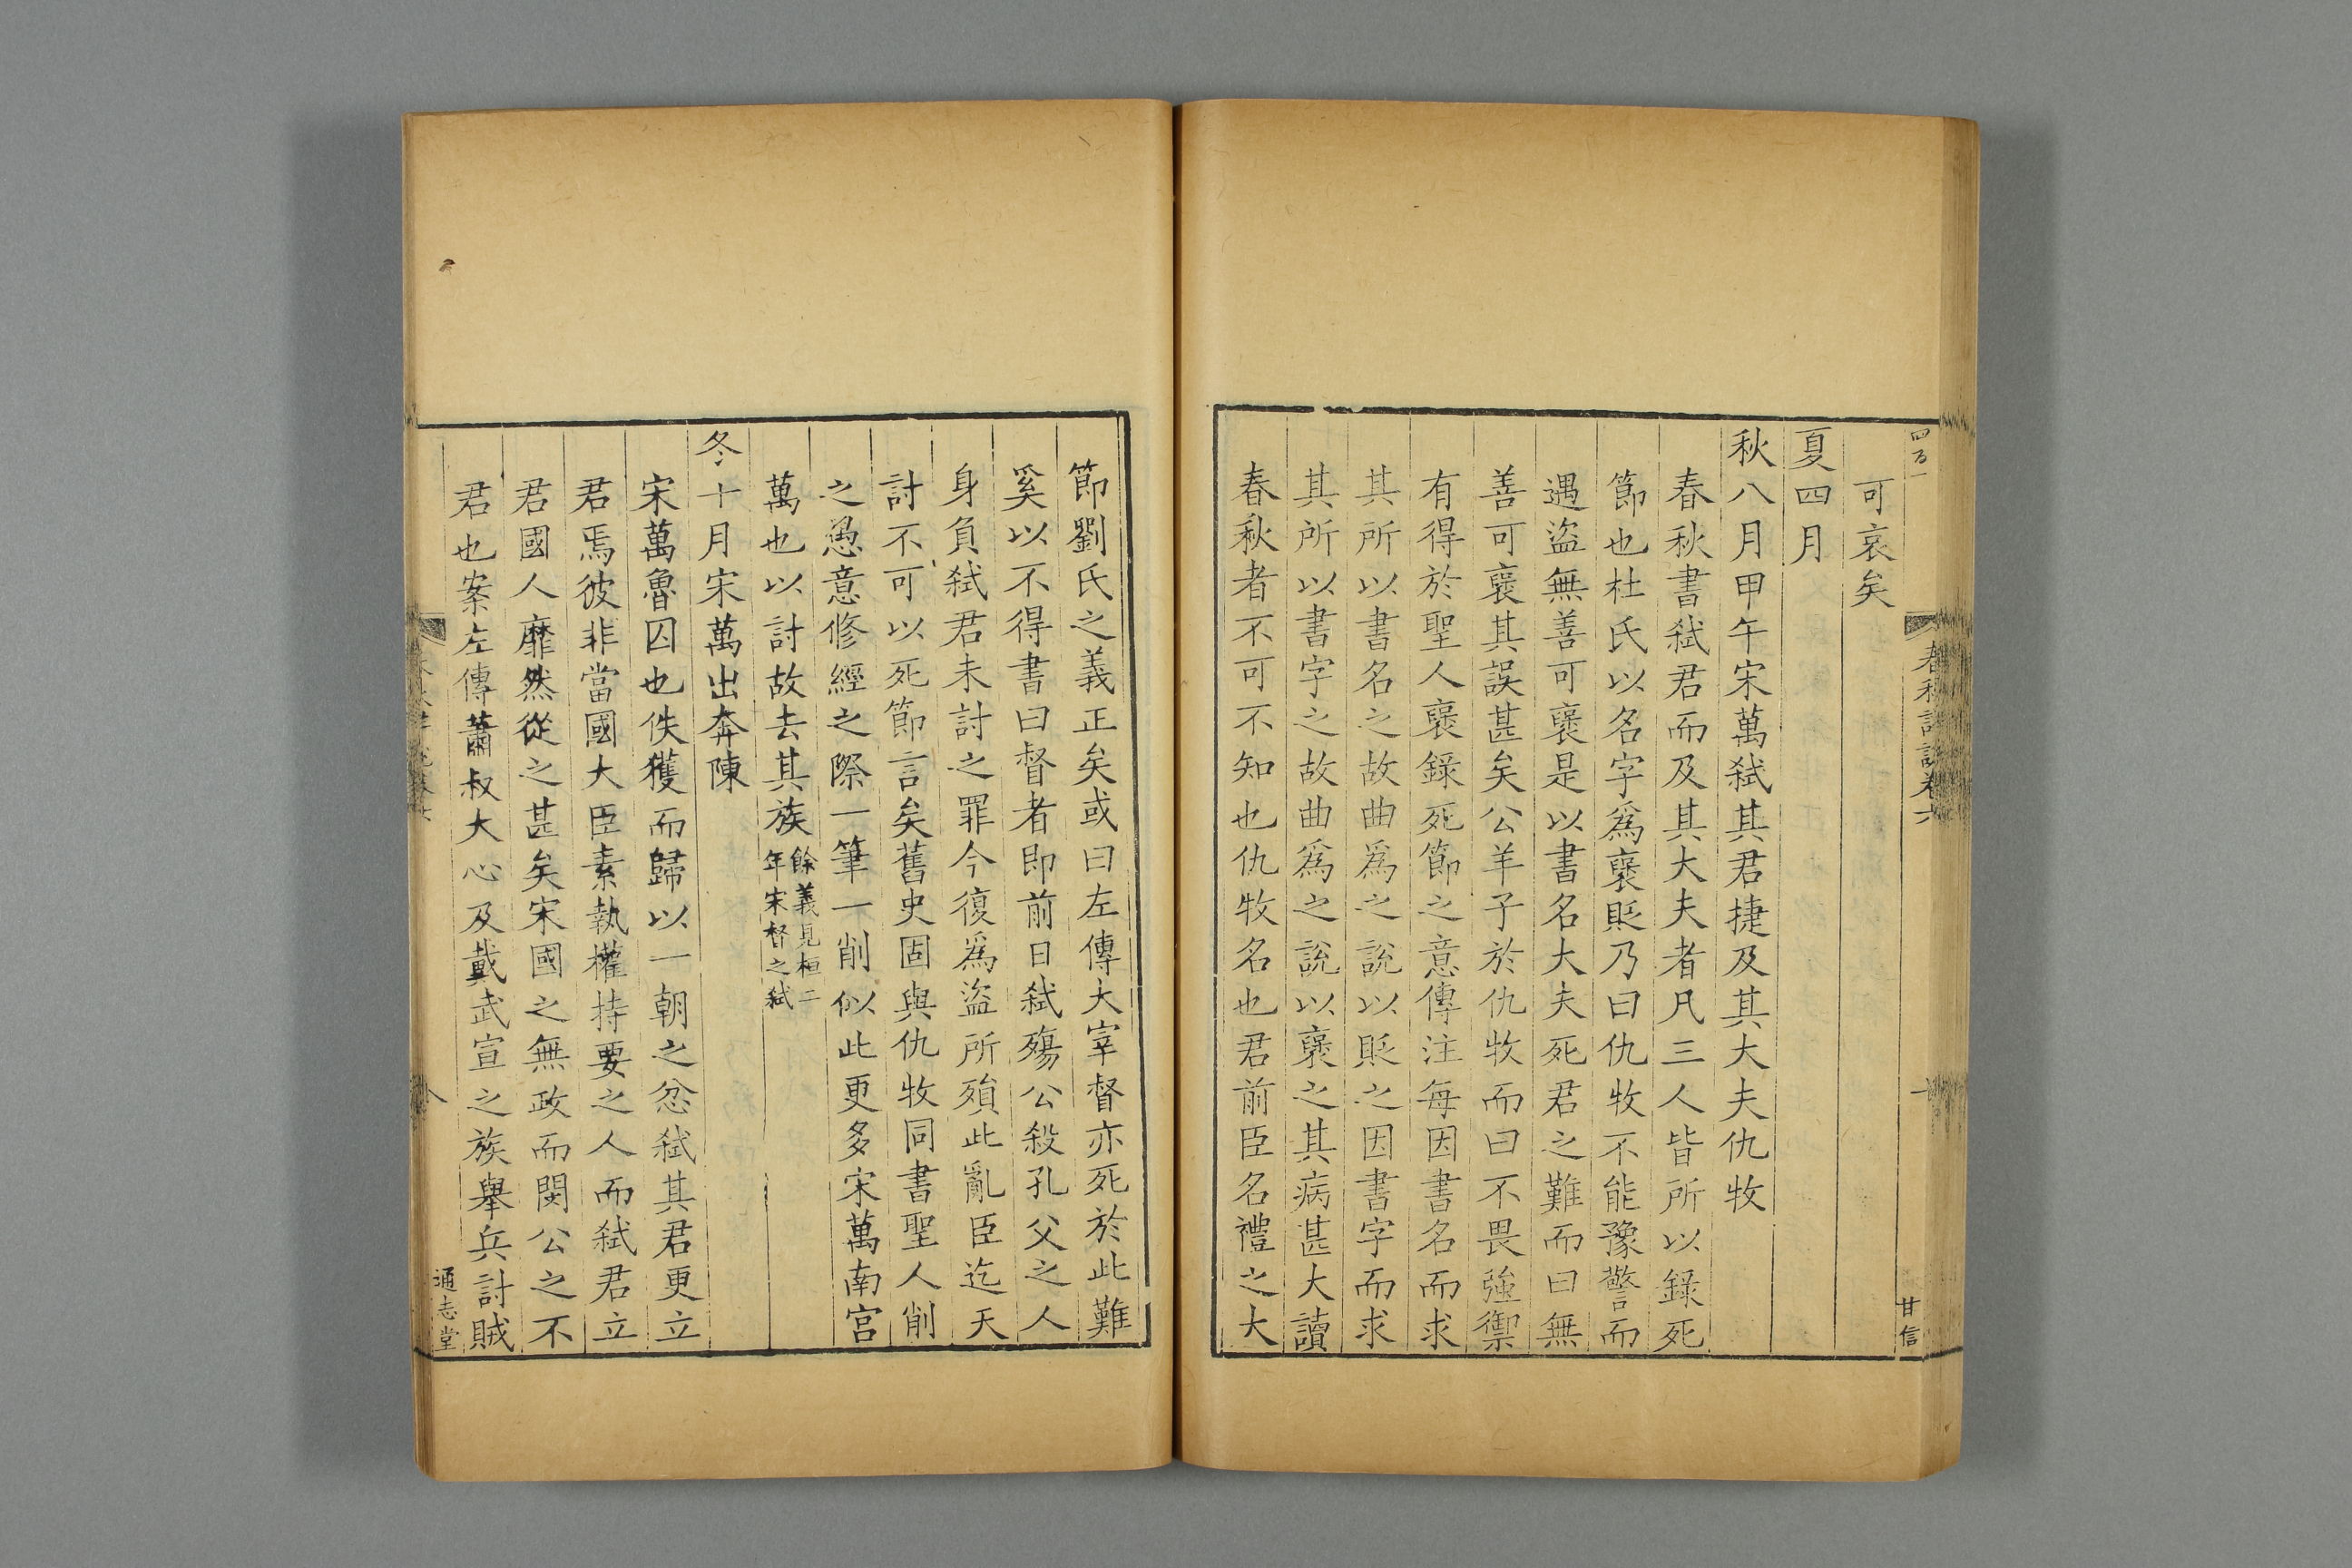 可哀矣
夏四月
秋八月甲午宋萬弒其君捷及其大夫仇牧
春秋書弒君而及其大夫者凡三人皆所以錄死
節也杜氏以名字爲襃貶乃曰仇牧不能豫警而
遇盜無善可襃是以書名大夫死君之難而曰無
善可襃其誤甚矣公羊子於仇牧而曰不畏強禦
有得於聖人襃錄死節之意傳注每因書名而求
其所以書名之故曲爲之說以貶之因書字而求
其所以書字之故曲爲之說以襃之其病甚大讀
春秋者不可不知也仇牧名也君前臣名禮之大
甘信
節劉氏之義正矣或曰左傳大宰督亦死於此難
奚以不得書曰督者即前日弒殤公殺孔父之人
身負弒君未討之罪今復爲盜所殞此亂臣迄天
討不可以死節言矣舊史固與仇牧同書聖人削
之愚意修經之際一筆一削似此更多宋萬南宮
萬也以討故去其族餘義見桓二年宋督之弒
冬十月宋萬出奔陳
宋萬魯囚也佚獲而歸以一朝之忿弒其君更立
君焉彼非當國大臣素執權持要之人而弒君立
君國人靡然從之甚矣宋國之無政而閔公之不
君也案左傳蕭叔大心及戴武宣之族舉兵討賊
通志堂